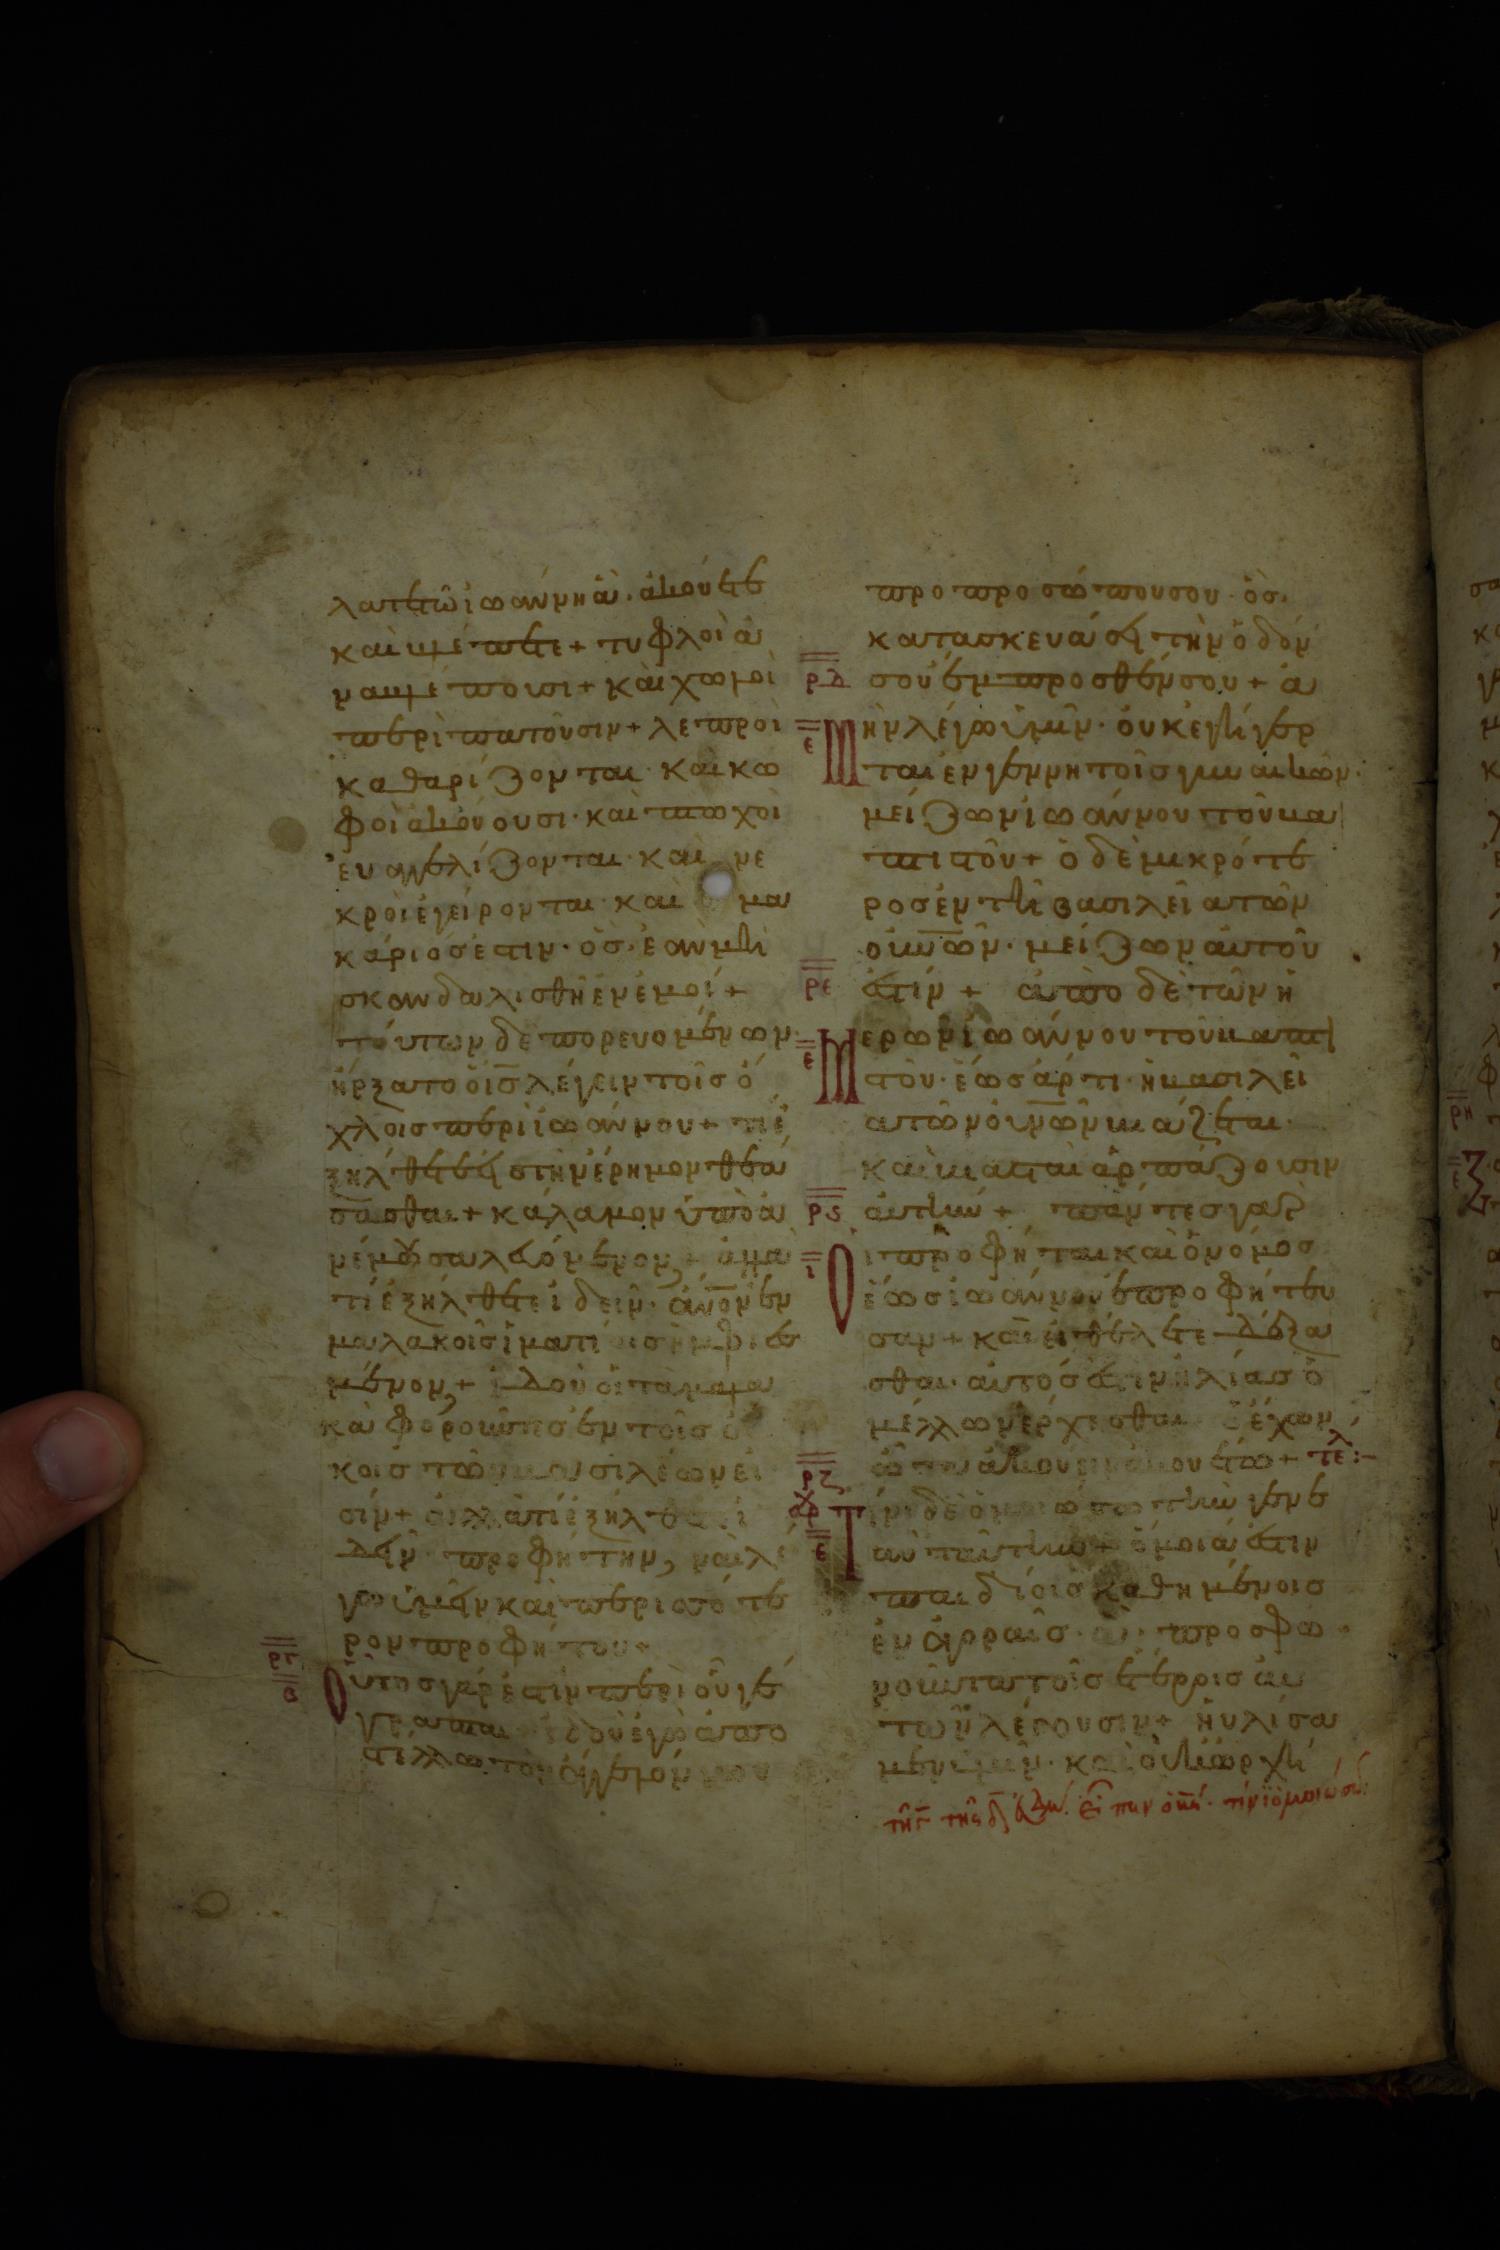 λατε τῶ ἰωάννη ἃ ἀκούετε
καὶ βλέπετε + τυφλοὶ ἀ
ναβλέπουσι + καὶ χωλοὶ
περὶπατοῦσιν + λεπροὶ
καθαρίζονται · καὶ κω
φοὶ ἀκούουσι · καὶ πτωχοὶ
ἐυαγγελίζονται · καὶ νε
κροὶ ἐγείρονται · καὶ μα
κάριός ἐστιν · ὃς ἐὰν μὴ
σκανδαλισθῆ ἐν ἐμοί +
τούτων δὲ πορευομένων
ἤρξατο ὁ ις λέγειν τοῖς ὄ
χλοις περὶ ἰωάννου + τί ἐ
ξήλθετε εἰς τὴν ἔρημον θεά
σασθαι + κάλαμον ὑπὸ ἀ
νέμου σαλευόμενον, ἀλλὰ
τί ἐξήλθετε ἰδεῖν · ανον ἐν
μαλακοῖς ἱματίοις ἠμφιεσ
μένον, + ἰδοὺ οἱ τὰ μαλα
κὰ φοροῦντες ἐν τοῖς οἴ
κοις τῶν βασιλέων εἰ
σίν + ἀλλὰ τί ἐξήλθετε ἰ
δεῖν · προφήτην, ναὶ λέ
γω ὑμῖν καὶ περισσότε
ρον προφήτου +
ργ
β
Οὗτος γάρ ἐστιν περὶ οὗ γέ
γραπται ἰδοὺ ἐγὼ ἀπο
στέλλω τὸν ἄγγελόν μου
προ προσώπου σου · ὃς
κατασκευάσει τὴν ὁδόν
ρδ
σου ἔμπροσθέν σου + ἀ
ε
Μὴν λέγω ὑμῖν · οὐκ ἐγήγερ
ται ἐν γεννητοῖς γυναικῶν ·
μείζων ἰωάννου τοῦ βα
πτιστοῦ + ὁ δὲ μικρότε
ρος ἐν τῆ βασιλεία τῶν
ουνων · μείζων αὐτοῦ
ρε
ἐστίν + ἀπὸ δὲ τῶν ἡ
ε
Μερῶν ἰωάννου τοῦ βαπτι
στοῦ · ἕως ἄρτι · ἡ βασιλεί
α τῶν ουνων βιάζεται ·
καὶ βιασταὶ ἁρπάζουσιν
ρς
αὐτήν + πάντες γὰρ
ι
Οἱ προφῆται καὶ ὁ νόμος
ἕως ἰωάννου ἐπροφήτευ
σαν + καὶ εἰ θέλετε δέξα
σθαι · αὐτός ἐστιν ἠλίας ὁ
μέλλων ἔρχεσθαι ὁ ἔχων
ὦτα ἀκούειν ἀκουέτω + τελ :-
ρζ
αρχ
ε
Τίνι δὲ ὁμοιώσω τὴν γενε
ὰν ταύτην + ὁμοία ἐστιν
παιδίοις καθημένοις
ἐν ἀγοραῖς · προσφω
νοῦντα τοῖς ἑτέροις αὐ
τῶν λέγουσιν + ηὐλήσα
μεν ὑμῖν · καὶ οὐκ ὠρχή